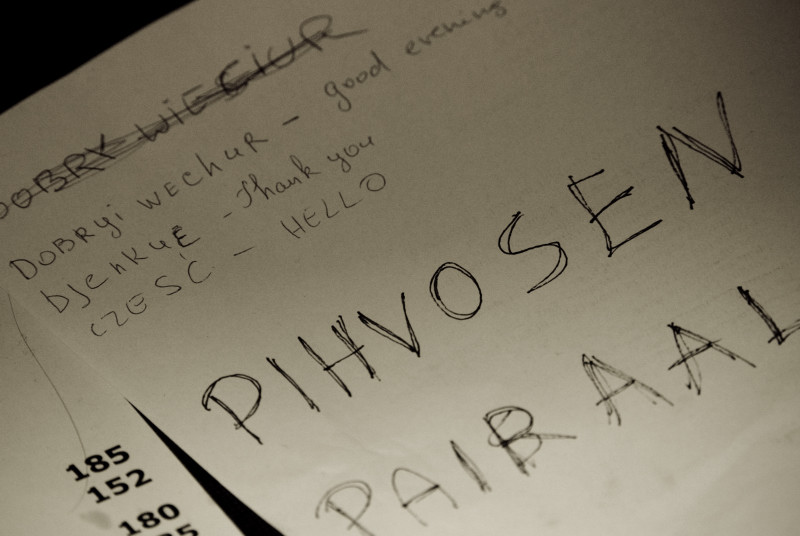 DOBRY WIECIUR
DOBRYi WECHUR - good evening
bjenkuE - Thank you
CZEŚĆ - HELLO
PIHVOSEN
PAIRAAL
185
152
180